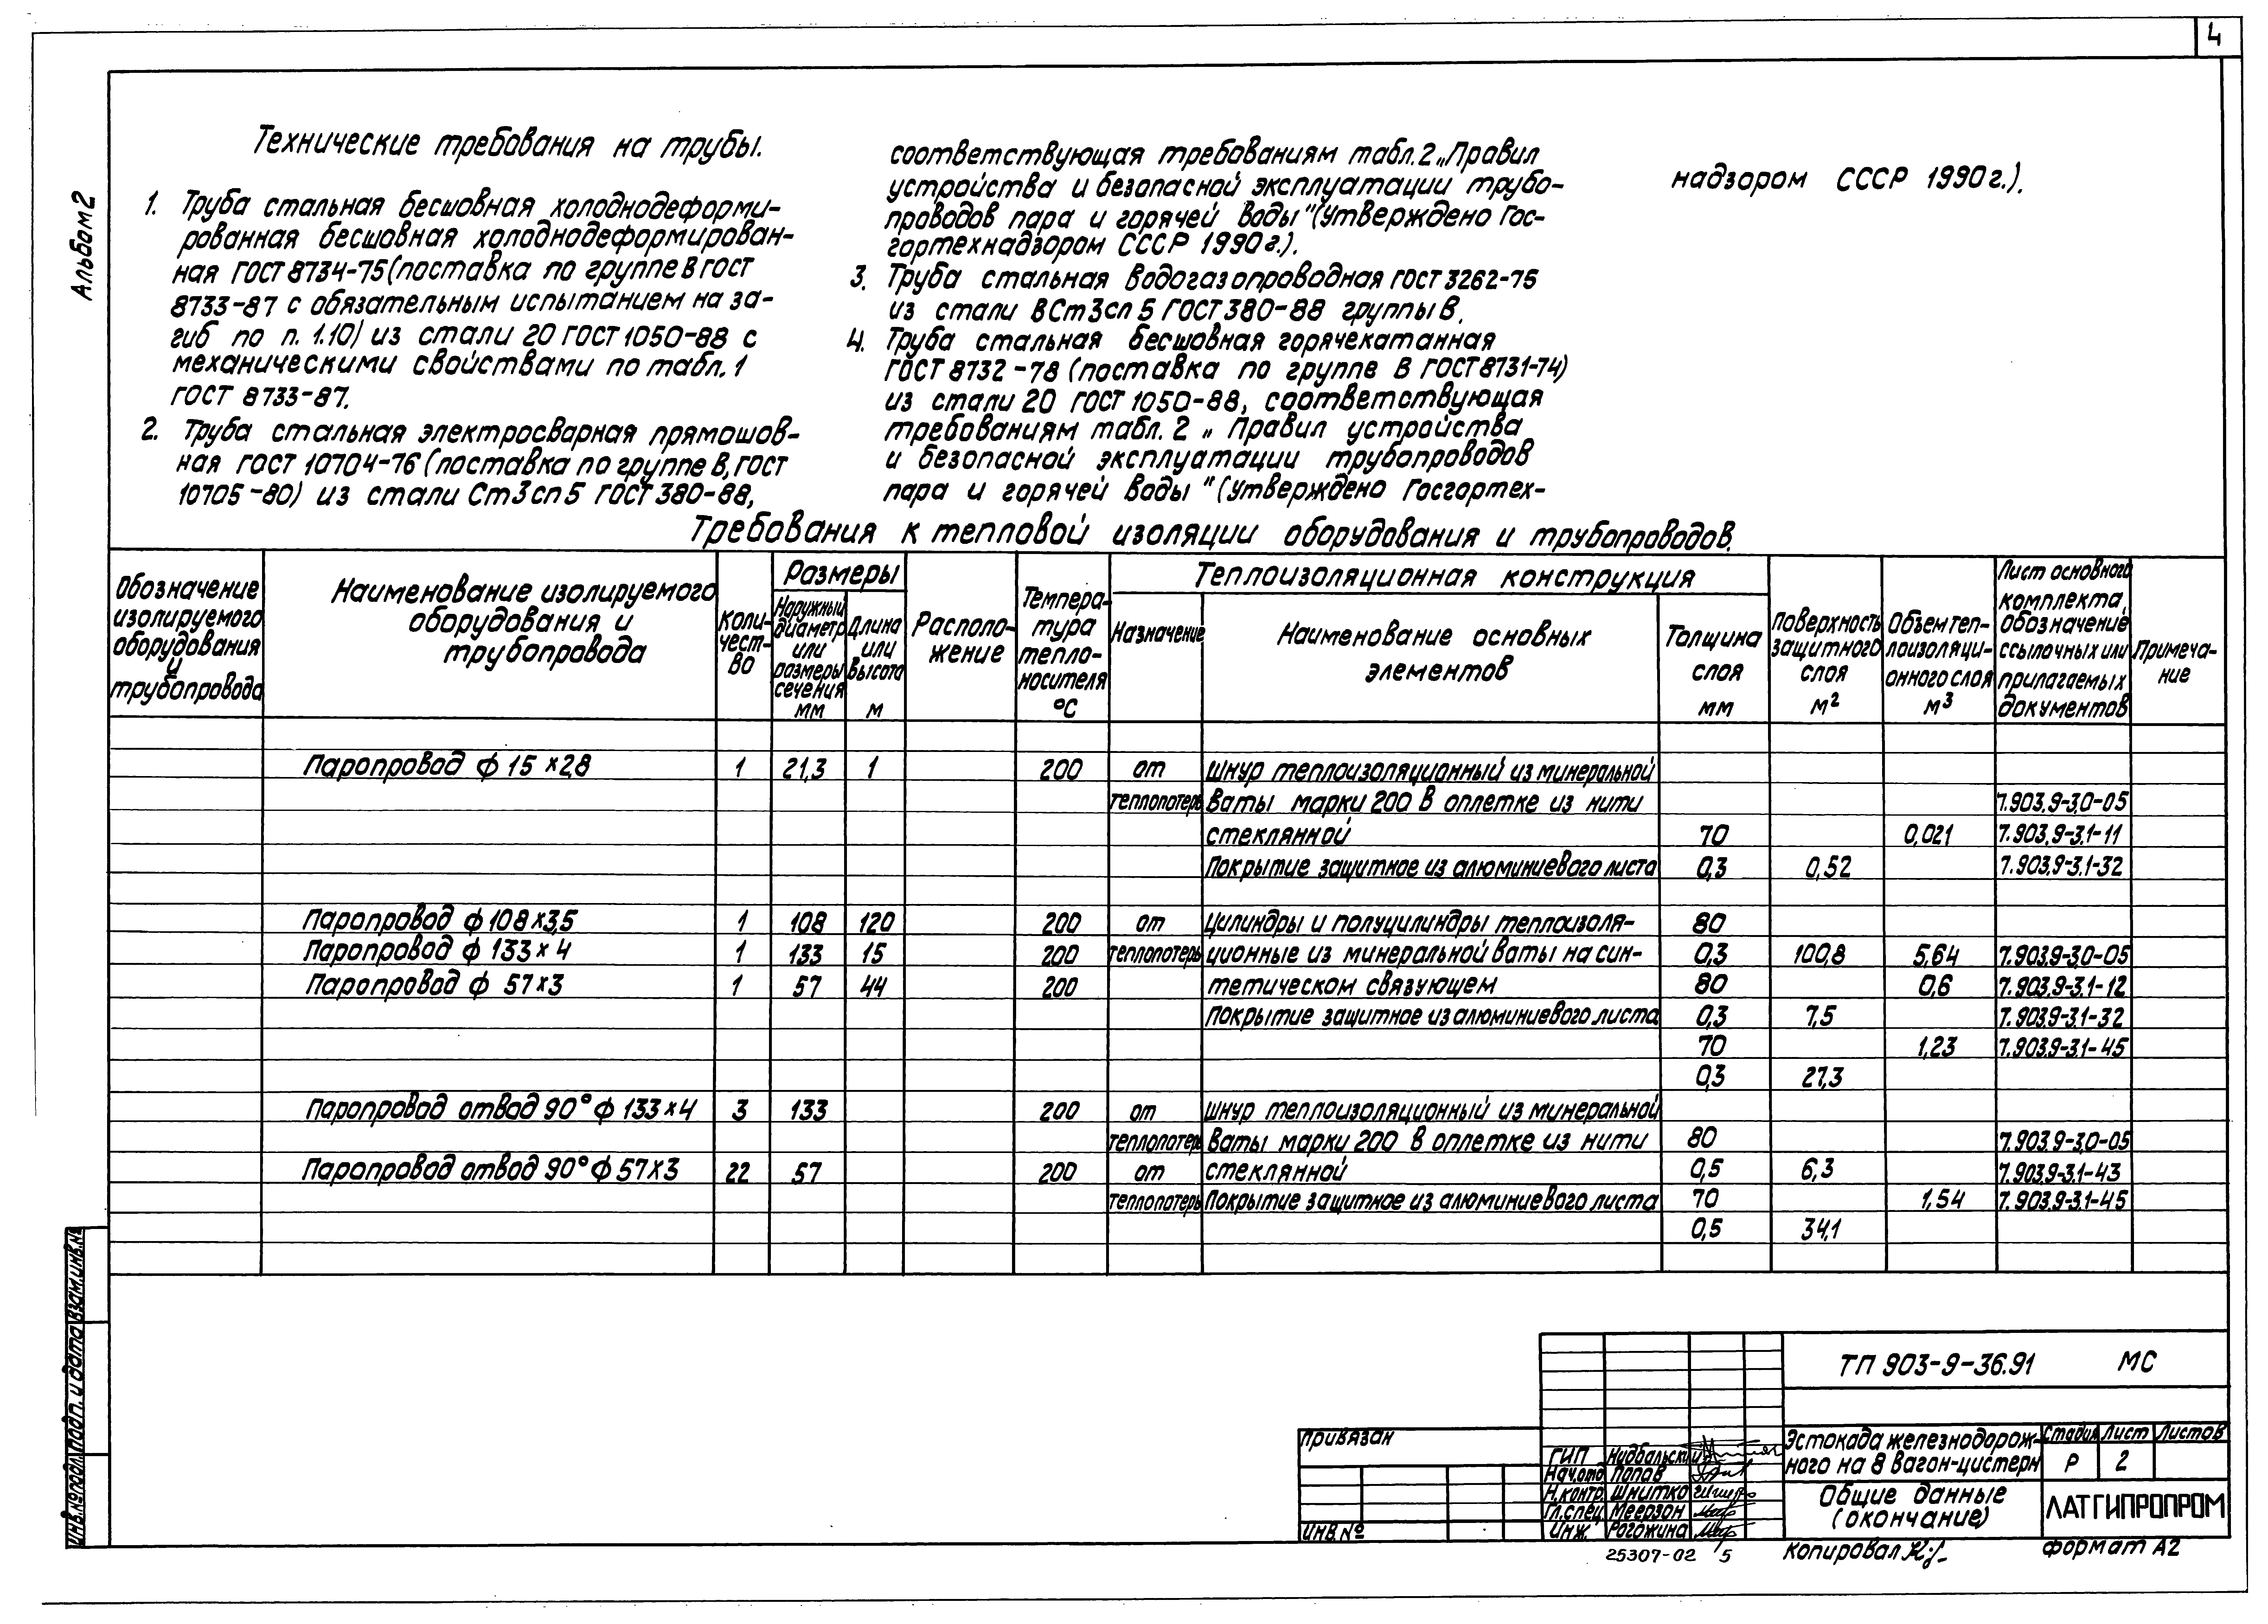 4
Альбом 2
Технические требования на трубы.
1. Труба стальная бесшовная холоднодеформи-
рованная бесшовная холоднодеформирован-
ная ГОСТ 8734-75 (поставка по группе В ГОСТ
8733-87 с обязательным испытанием на за-
гиб по п. 1.10) из стали 20 ГОСТ 1050-88 с
механическими свойствами по табл. 1
ГОСТ 8733-87.
2. Труба стальная электросварная прямошов-
ная ГОСТ 10704-76 (поставка по группе В, ГОСТ
10705-80) из стали Ст3сп5 ГОСТ 380-88,
соответствующая требованиям табл. 2 „Правил
устройства и безопасной эксплуатации трубо-
проводов пара и горячей воды" (Утверждено Гос-
гортехнадзором СССР 1990г.).
3. Труба стальная водогазопроводная ГОСТ 3262-75
из стали ВСт3сп5 ГОСТ 380-88 группы В.
4. Труба стальная бесшовная горячекатанная
ГОСТ 8732-78 (поставка по группе В ГОСТ 8731-74)
из стали 20 ГОСТ 1050-88, соответствующая
требованиям табл. 2 „Правил устройства
и безопасной эксплуатации трубопроводов
пара и горячей воды" (Утверждено Госгортех-
надзором СССР 1990г.).
Требования к тепловой изоляции оборудования и трубопроводов.
Обозначение изолируемого оборудования и трубопровода
Наименование изолируемого оборудования и трубопровода
Количест-во
Размеры
Наружный диаметр или размеры сечения мм
Длина или высота м
Располо-жение
Темпера-тура тепло-носителя °С
Теплоизоляционная конструкция
Назначение
Наименование основных элементов
Толщина слоя мм
Поверхность защитного слоя м²
Объем теп-лоизоляци-онного слоя м³
Лист основного комплекта, обозначение ссылочных или прилагаемых документов
Примеча-ние
Паропровод ф 15×2,8 1 21,3 1 200 от шнур теплоизоляционный из минеральной
теплопотерь ваты марки 200 в оплетке из нити 7.903.9-3.0-05
стеклянной 70 0,021 7.903.9-3.1-11
Покрытие защитное из алюминиевого листа 0,3 0,52 7.903.9-3.1-32
Паропровод ф 108×3,5 1 108 120 200 от Цилиндры и полуцилиндры теплоизоля- 80
Паропровод ф 133×4 1 133 15 200 теплопотерь ционные из минеральной ваты на син- 0,3 100,8 5,64 7.903.9-3.0-05
Паропровод ф 57×3 1 57 44 200 тетическом связующем 80 0,6 7.903.9-3.1-12
Покрытие защитное из алюминиевого листа 0,3 7,5 7.903.9-3.1-32
70 1,23 7.903.9-3.1-45
0,3 27,3
Паропровод отвод 90° ф 133×4 3 133 200 от шнур теплоизоляционный из минеральной
теплопотерь ваты марки 200 в оплетке из нити 80 7.903.9-3.0-05
Паропровод отвод 90° ф 57×3 22 57 200 от стеклянной 0,5 6,3 7.903.9-3.1-43
теплопотерь Покрытие защитное из алюминиевого листа 70 1,54 7.903.9-3.1-45
0,5 34,1
Инв.№подл. Подп. и дата Взам.инв.№
Привязан
Инв.№
ГИП Нидбальский
Нач.отд Попов
Н.контр. Шнитко
Гл.спец Меерзон
Инж. Рогожина
ТП 903-9-36.91 МС
Эстокада железнодорож-
ного на 8 вагон-цистерн
Стадия Лист Листов
Р 2
Общие данные
(окончание)
ЛАТГИПРОПРОМ
25307-02 5
Копировал
Формат А2